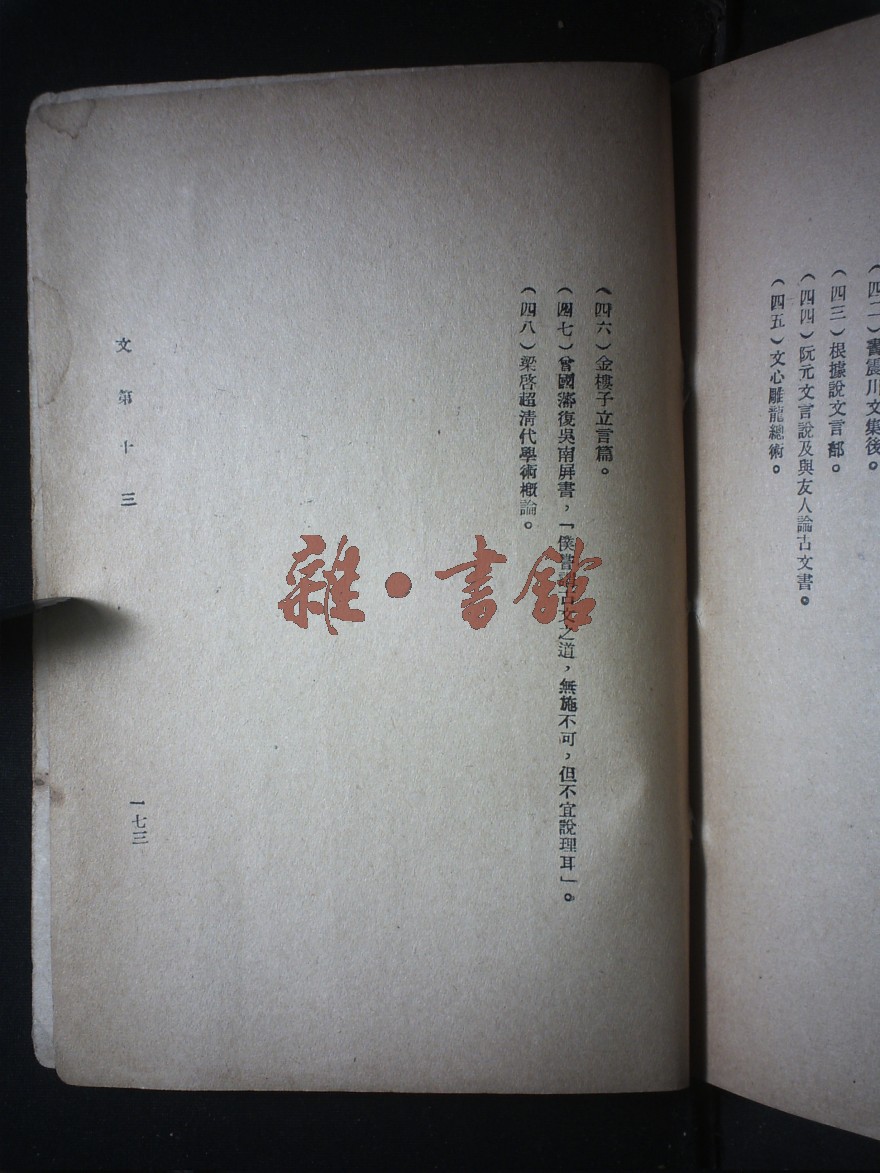 （四二）書震川文集後。
（四三）根據說文言部。
（四四）阮元文言說及與友人論古文書。
（四五）文心雕龍總術。
（四六）金樓子立言篇。
（四七）曾國藩復吳南屏書，「僕嘗謂古文之道，無施不可，但不宜說理耳」。
（四八）梁啓超清代學術概論。
文第十三
一七三
雜·書館